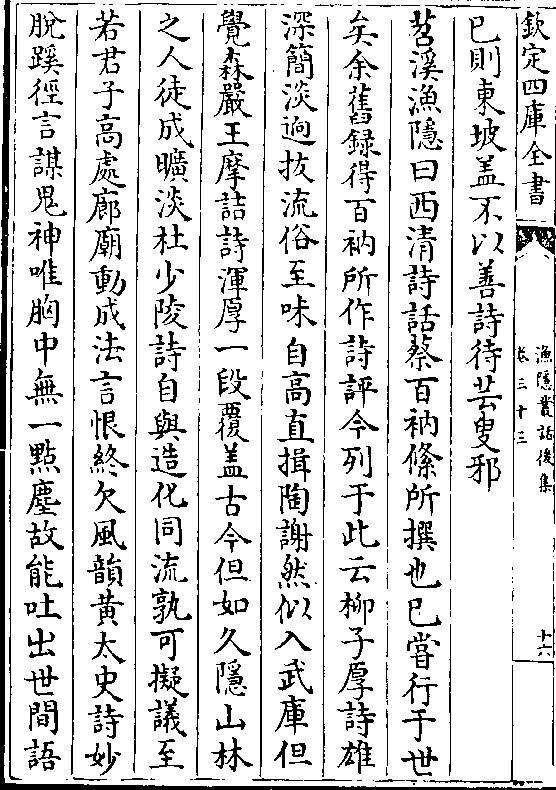 欽定四庫全書
漁隱叢話後集
卷三十三
十六
已則東坡盖不以善詩待芸叟邪
苕溪漁隱曰西清詩話蔡百衲絛所撰也已嘗行于世
矣余舊録得百衲所作詩評今列于此云栁子厚詩雄
深簡淡逈拔流俗至味自高直揖陶謝然似入武庫但
覺森嚴王摩詰詩渾厚一段覆盖古今但如久隱山林
之人徒成曠淡杜少陵詩自與造化同流孰可擬議至
若君子高處廊廟動成法言恨終欠風韻黄太史詩妙
脫蹊徑言謀鬼神唯胸中無一點塵故能吐出世間語